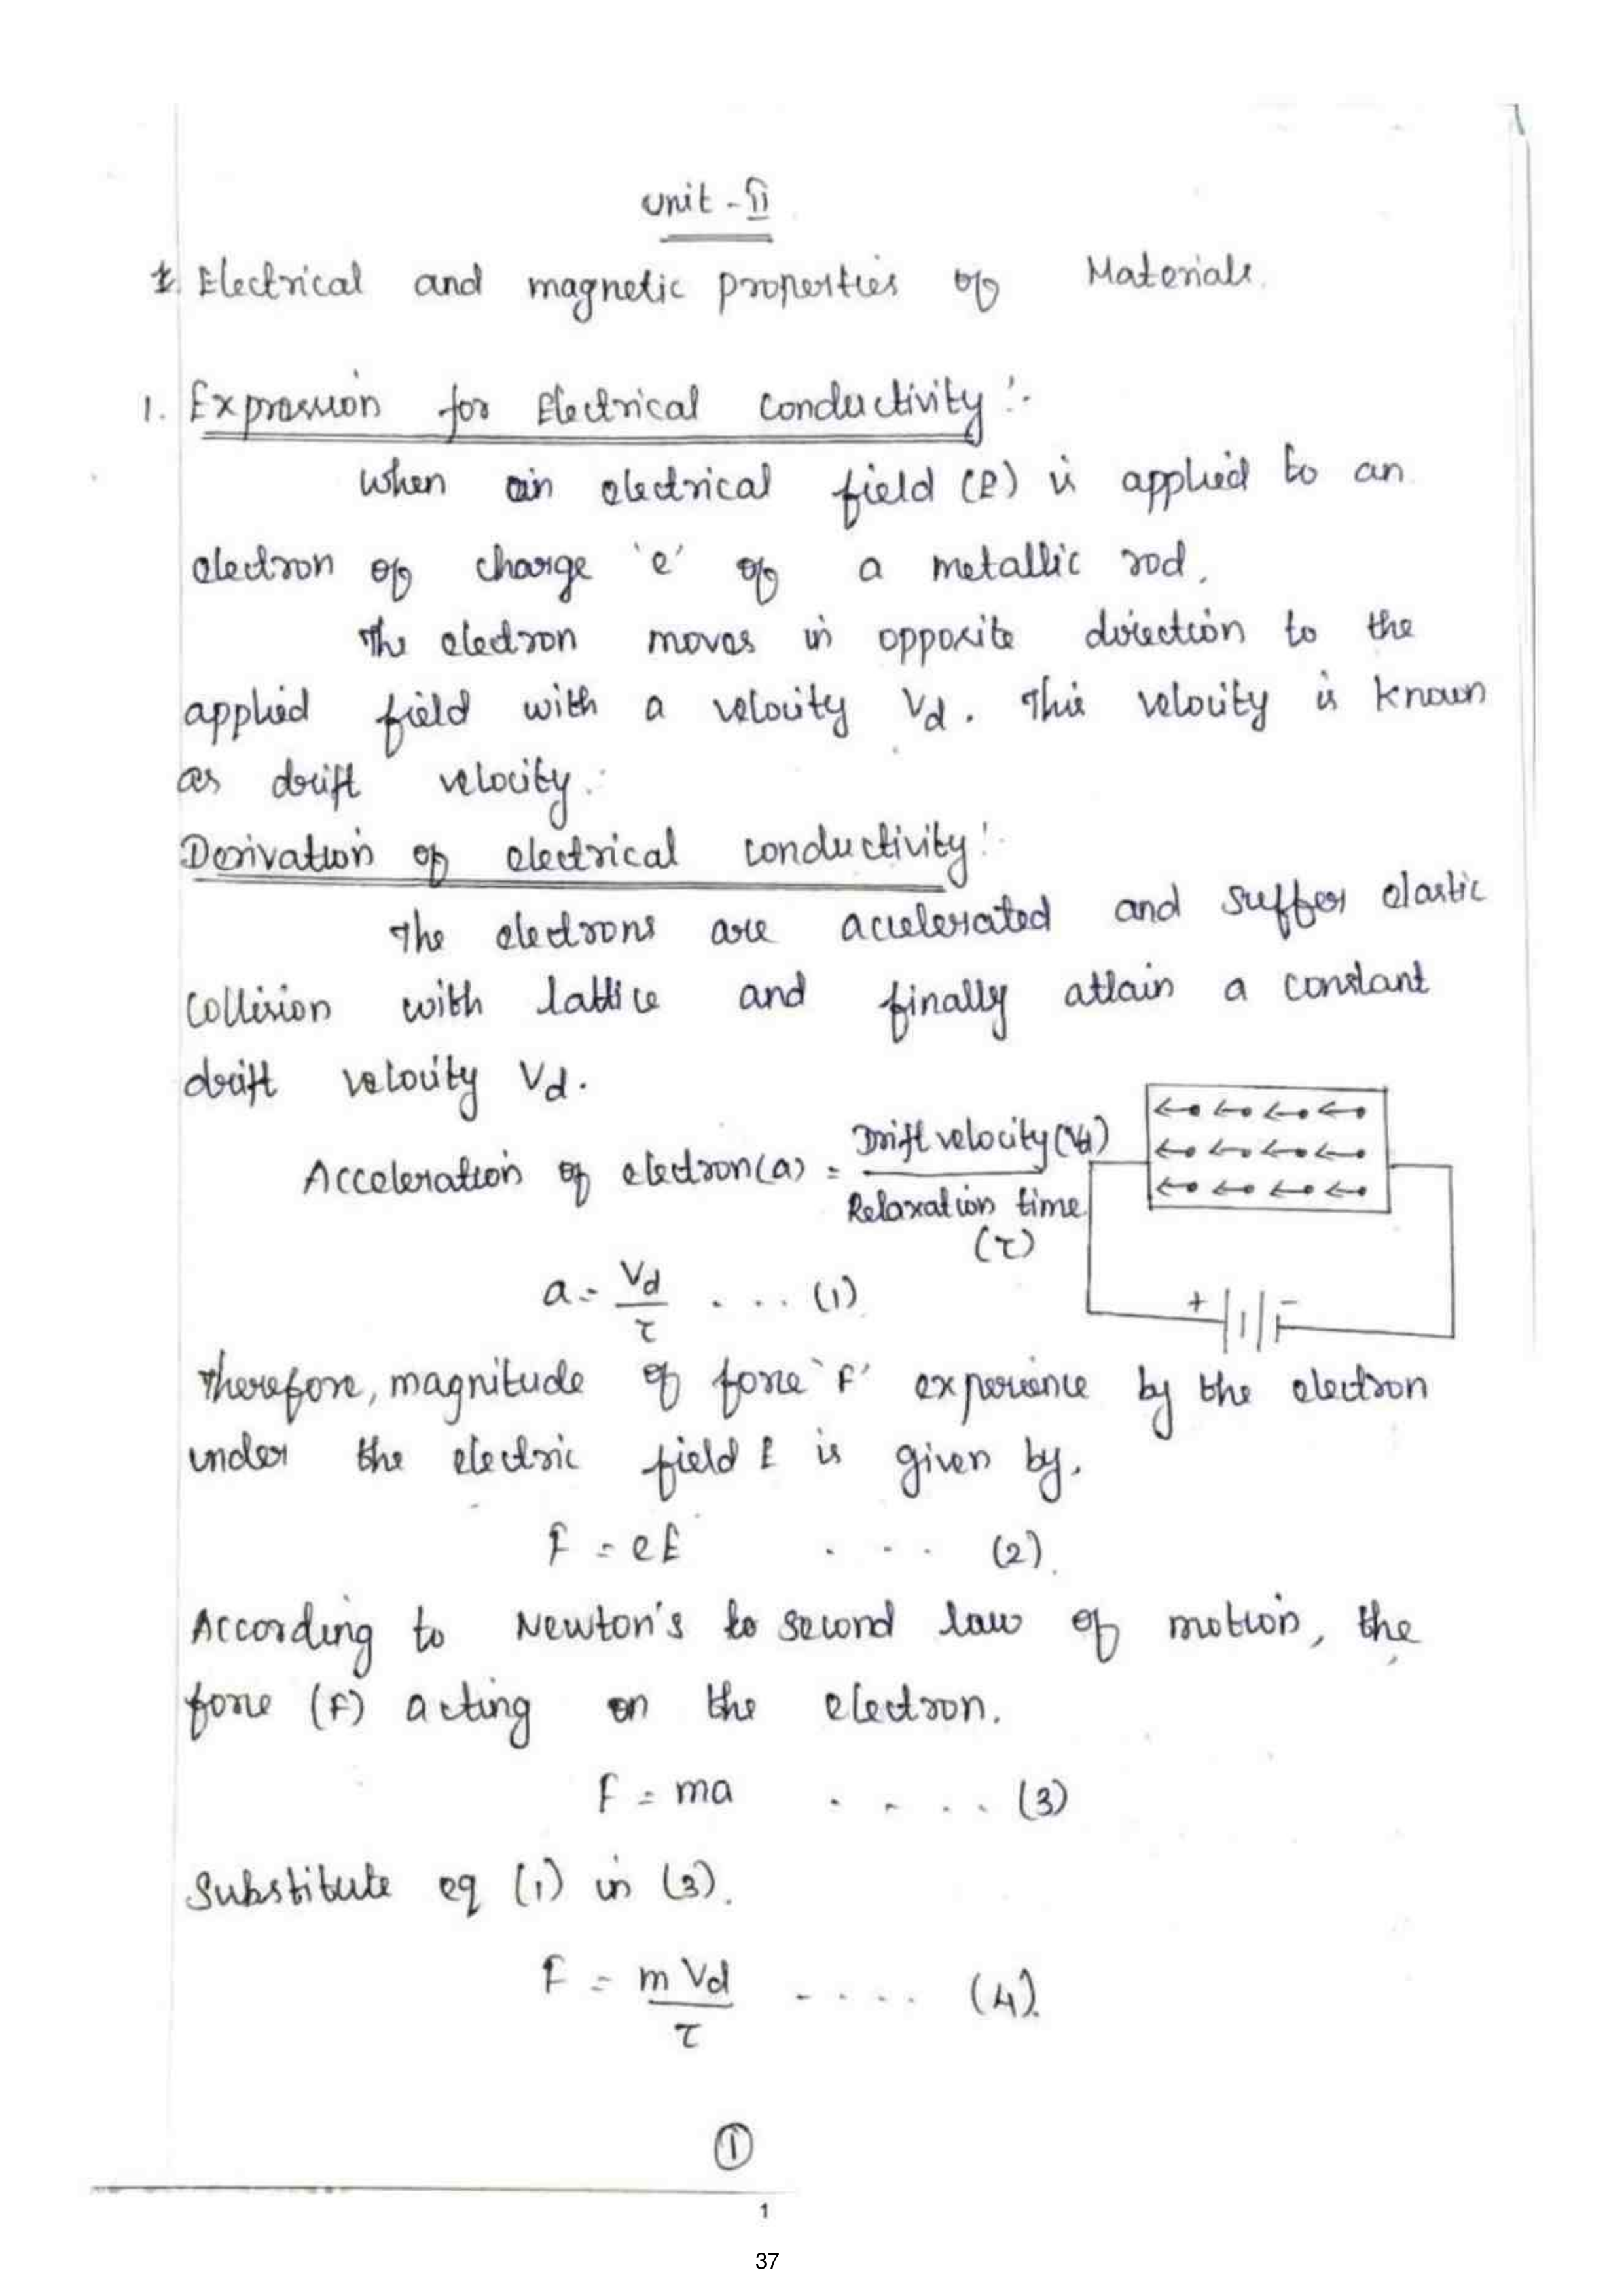 Unit - II
Electrical and magnetic properties of Materials.
1. Expression for Electrical conductivity :-
When an electrical field (E) is applied to an
electron of charge 'e' of a metallic rod.
The electron moves in opposite direction to the
applied field with a velocity Vd. This velocity is known
as drift velocity.
Derivation of electrical conductivity :-
The electrons are accelerated and suffer elastic
collision with lattice and finally attain a constant
drift velocity Vd.
Acceleration of electron (a) = Drift velocity (Vd)
Relaxation time
(τ)
a = Vd
τ
. . . . (1)
+ -
Therefore, magnitude of force 'F' experience by the electron
under the electric field E is given by,
F = eE . . . (2).
According to Newton's to second law of motion, the
force (F) acting on the electron.
F = ma . . . . (3)
Substitute eq (1) in (3).
F = m Vd
τ
. . . . (4).
1
1
37